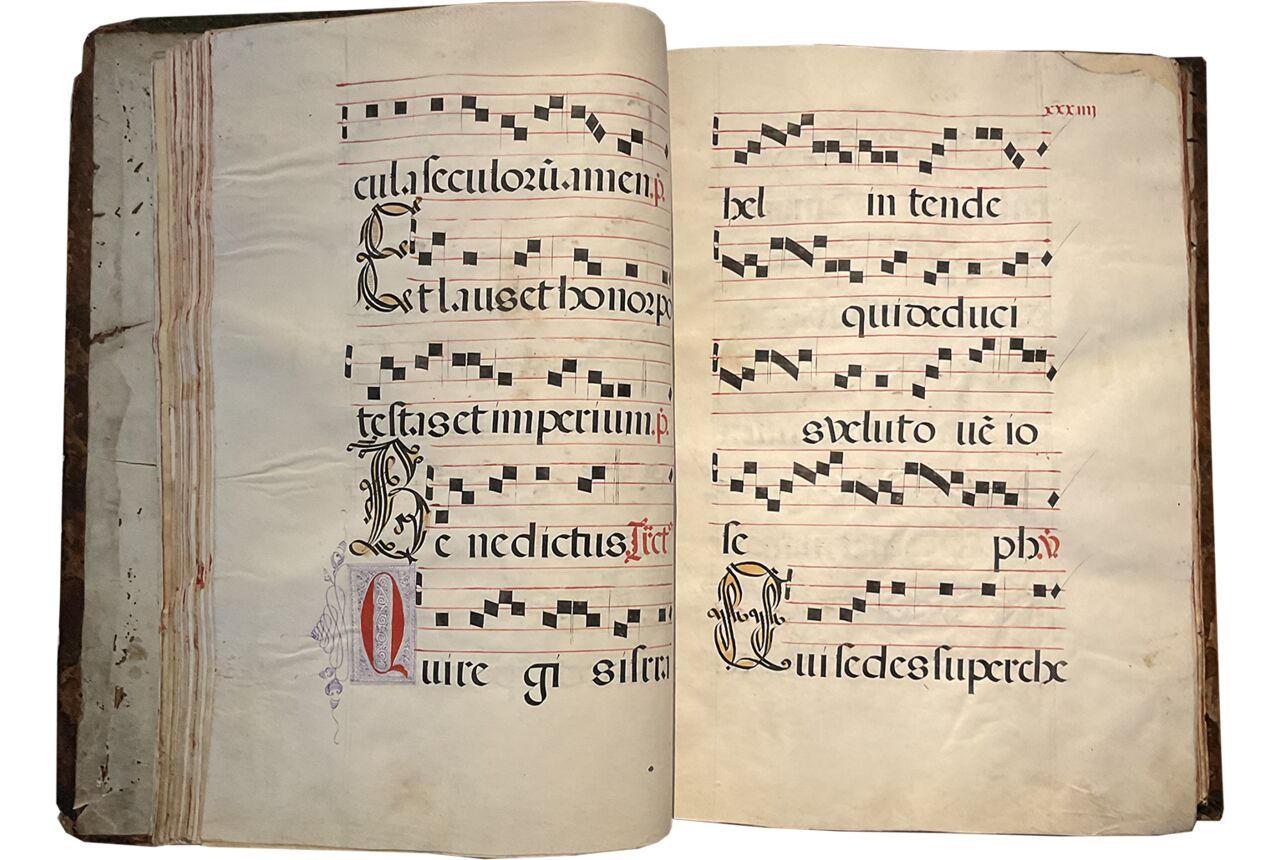 cula seculorũ. amen. p̃.
Et laus et honor po
testas et imperium. p̃.
Be nedictus.
Qui re gi s isrra
xxxiiij
hel in tende
qui deduci
s velut o uẽ io
se ph. v̄.
Qui sedes super che